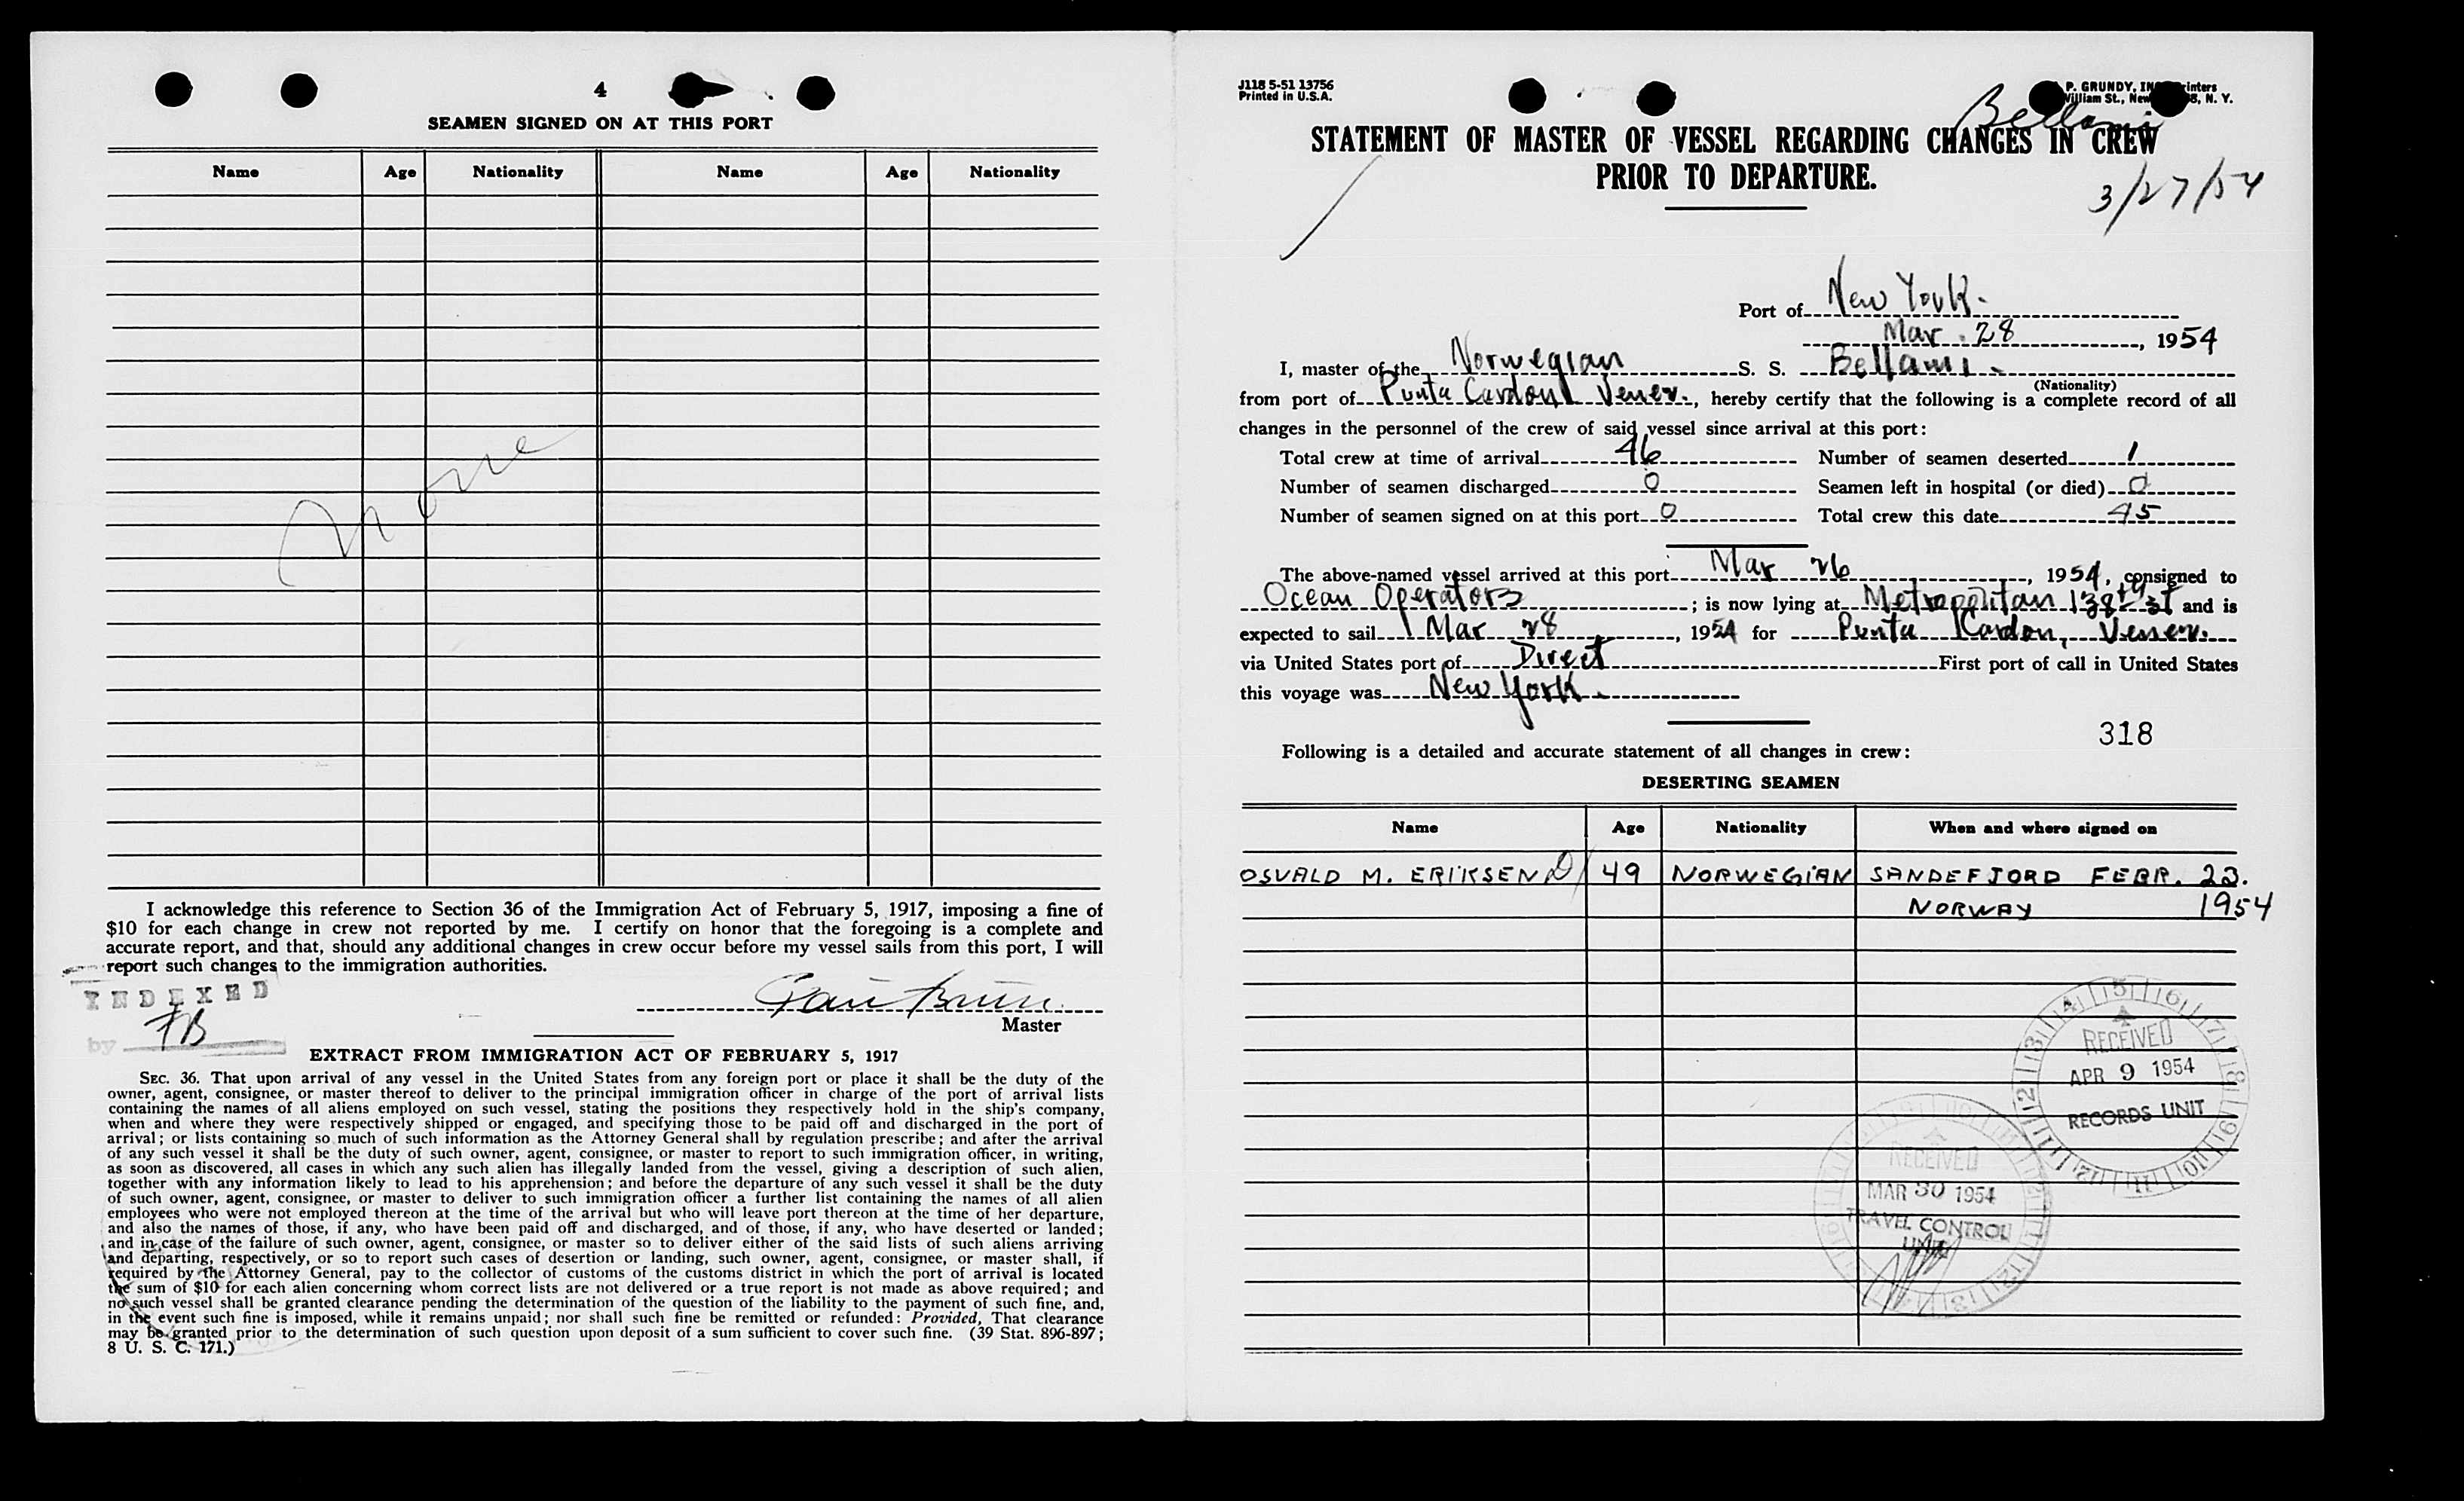 4
SEAMEN SIGNED ON AT THIS PORT
Name Age Nationality Name Age Nationality
None
I acknowledge this reference to Section 36 of the Immigration Act of February 5, 1917, imposing a fine of
$10 for each change in crew not reported by me. I certify on honor that the foregoing is a complete and
accurate report, and that, should any additional changes in crew occur before my vessel sails from this port, I will
report such changes to the immigration authorities.
INDEXED
by FB
Master
EXTRACT FROM IMMIGRATION ACT OF FEBRUARY 5, 1917
SEC. 36. That upon arrival of any vessel in the United States from any foreign port or place it shall be the duty of the
owner, agent, consignee, or master thereof to deliver to the principal immigration officer in charge of the port of arrival lists
containing the names of all aliens employed on such vessel, stating the positions they respectively hold in the ship's company,
when and where they were respectively shipped or engaged, and specifying those to be paid off and discharged in the port of
arrival; or lists containing so much of such information as the Attorney General shall by regulation prescribe; and after the arrival
of any such vessel it shall be the duty of such owner, agent, consignee, or master to report to such immigration officer, in writing,
as soon as discovered, all cases in which any such alien has illegally landed from the vessel, giving a description of such alien,
together with any information likely to lead to his apprehension; and before the departure of any such vessel it shall be the duty
of such owner, agent, consignee, or master to deliver to such immigration officer a further list containing the names of all alien
employees who were not employed thereon at the time of the arrival but who will leave port thereon at the time of her departure,
and also the names of those, if any, who have been paid off and discharged, and of those, if any, who have deserted or landed;
and in case of the failure of such owner, agent, consignee, or master so to deliver either of the said lists of such aliens arriving
and departing, respectively, or so to report such cases of desertion or landing, such owner, agent, consignee, or master shall, if
required by the Attorney General, pay to the collector of customs of the customs district in which the port of arrival is located
the sum of $10 for each alien concerning whom correct lists are not delivered or a true report is not made as above required; and
no such vessel shall be granted clearance pending the determination of the question of the liability to the payment of such fine, and,
in the event such fine is imposed, while it remains unpaid; nor shall such fine be remitted or refunded: Provided, That clearance
may be granted prior to the determination of such question upon deposit of a sum sufficient to cover such fine. (39 Stat. 896-897;
8 U. S. C. 171.)
J118 5-51 13756
Printed in U.S.A.
P. GRUNDY, Printers
William St., New N. Y.
Bellami
STATEMENT OF MASTER OF VESSEL REGARDING CHANGES IN CREW
PRIOR TO DEPARTURE.
3/27/54
Port of New York.
Mar. 28, 1954
I, master of the Norwegian S. S. Bellami.
(Nationality)
from port of Punta Cardon Venez., hereby certify that the following is a complete record of all
changes in the personnel of the crew of said vessel since arrival at this port:
Total crew at time of arrival 46 Number of seamen deserted 1
Number of seamen discharged 0 Seamen left in hospital (or died) 0
Number of seamen signed on at this port 0 Total crew this date 45
The above-named vessel arrived at this port Mar 26, 1954, consigned to
Ocean Operators; is now lying at Metropolitan 138th St and is
expected to sail Mar 28, 1954 for Punta Cardon, Venez.
via United States port of Direct First port of call in United States
this voyage was New York.
318
Following is a detailed and accurate statement of all changes in crew:
DESERTING SEAMEN
Name Age Nationality When and where signed on
OSVALD M. ERIKSEN D/ 49 NORWEGIAN SANDEFJORD FEBR. 23.
NORWAY 1954
RECEIVED
APR 9 1954
RECORDS UNIT
RECEIVED
MAR 30 1954
TRAVEL CONTROL
UNIT